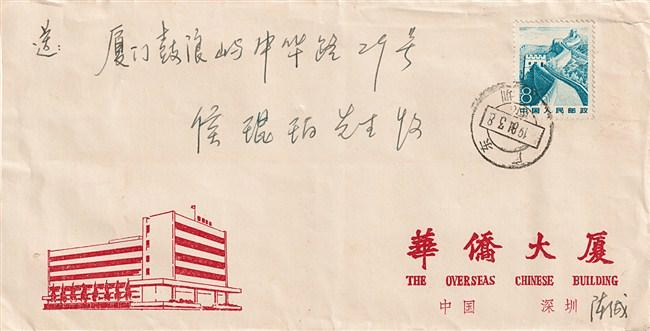 送: 厦门鼓浪屿中华路29号
侯琨珀先生收
8
中国人民邮政
1984.3.8
華僑大厦
THE OVERSEAS CHINESE BUILDING
中国 深圳